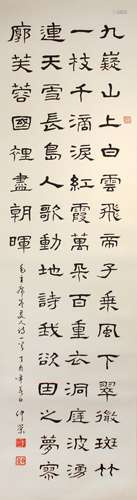 九嶷山上白雲飛帝子乘風下翠微斑竹
一枝千滴淚紅霞萬朵百重衣洞庭波湧
連天雪長島人歌動地詩我欲因之夢寥
廓芙蓉國裡盡朝暉
毛主席答友人詩一首